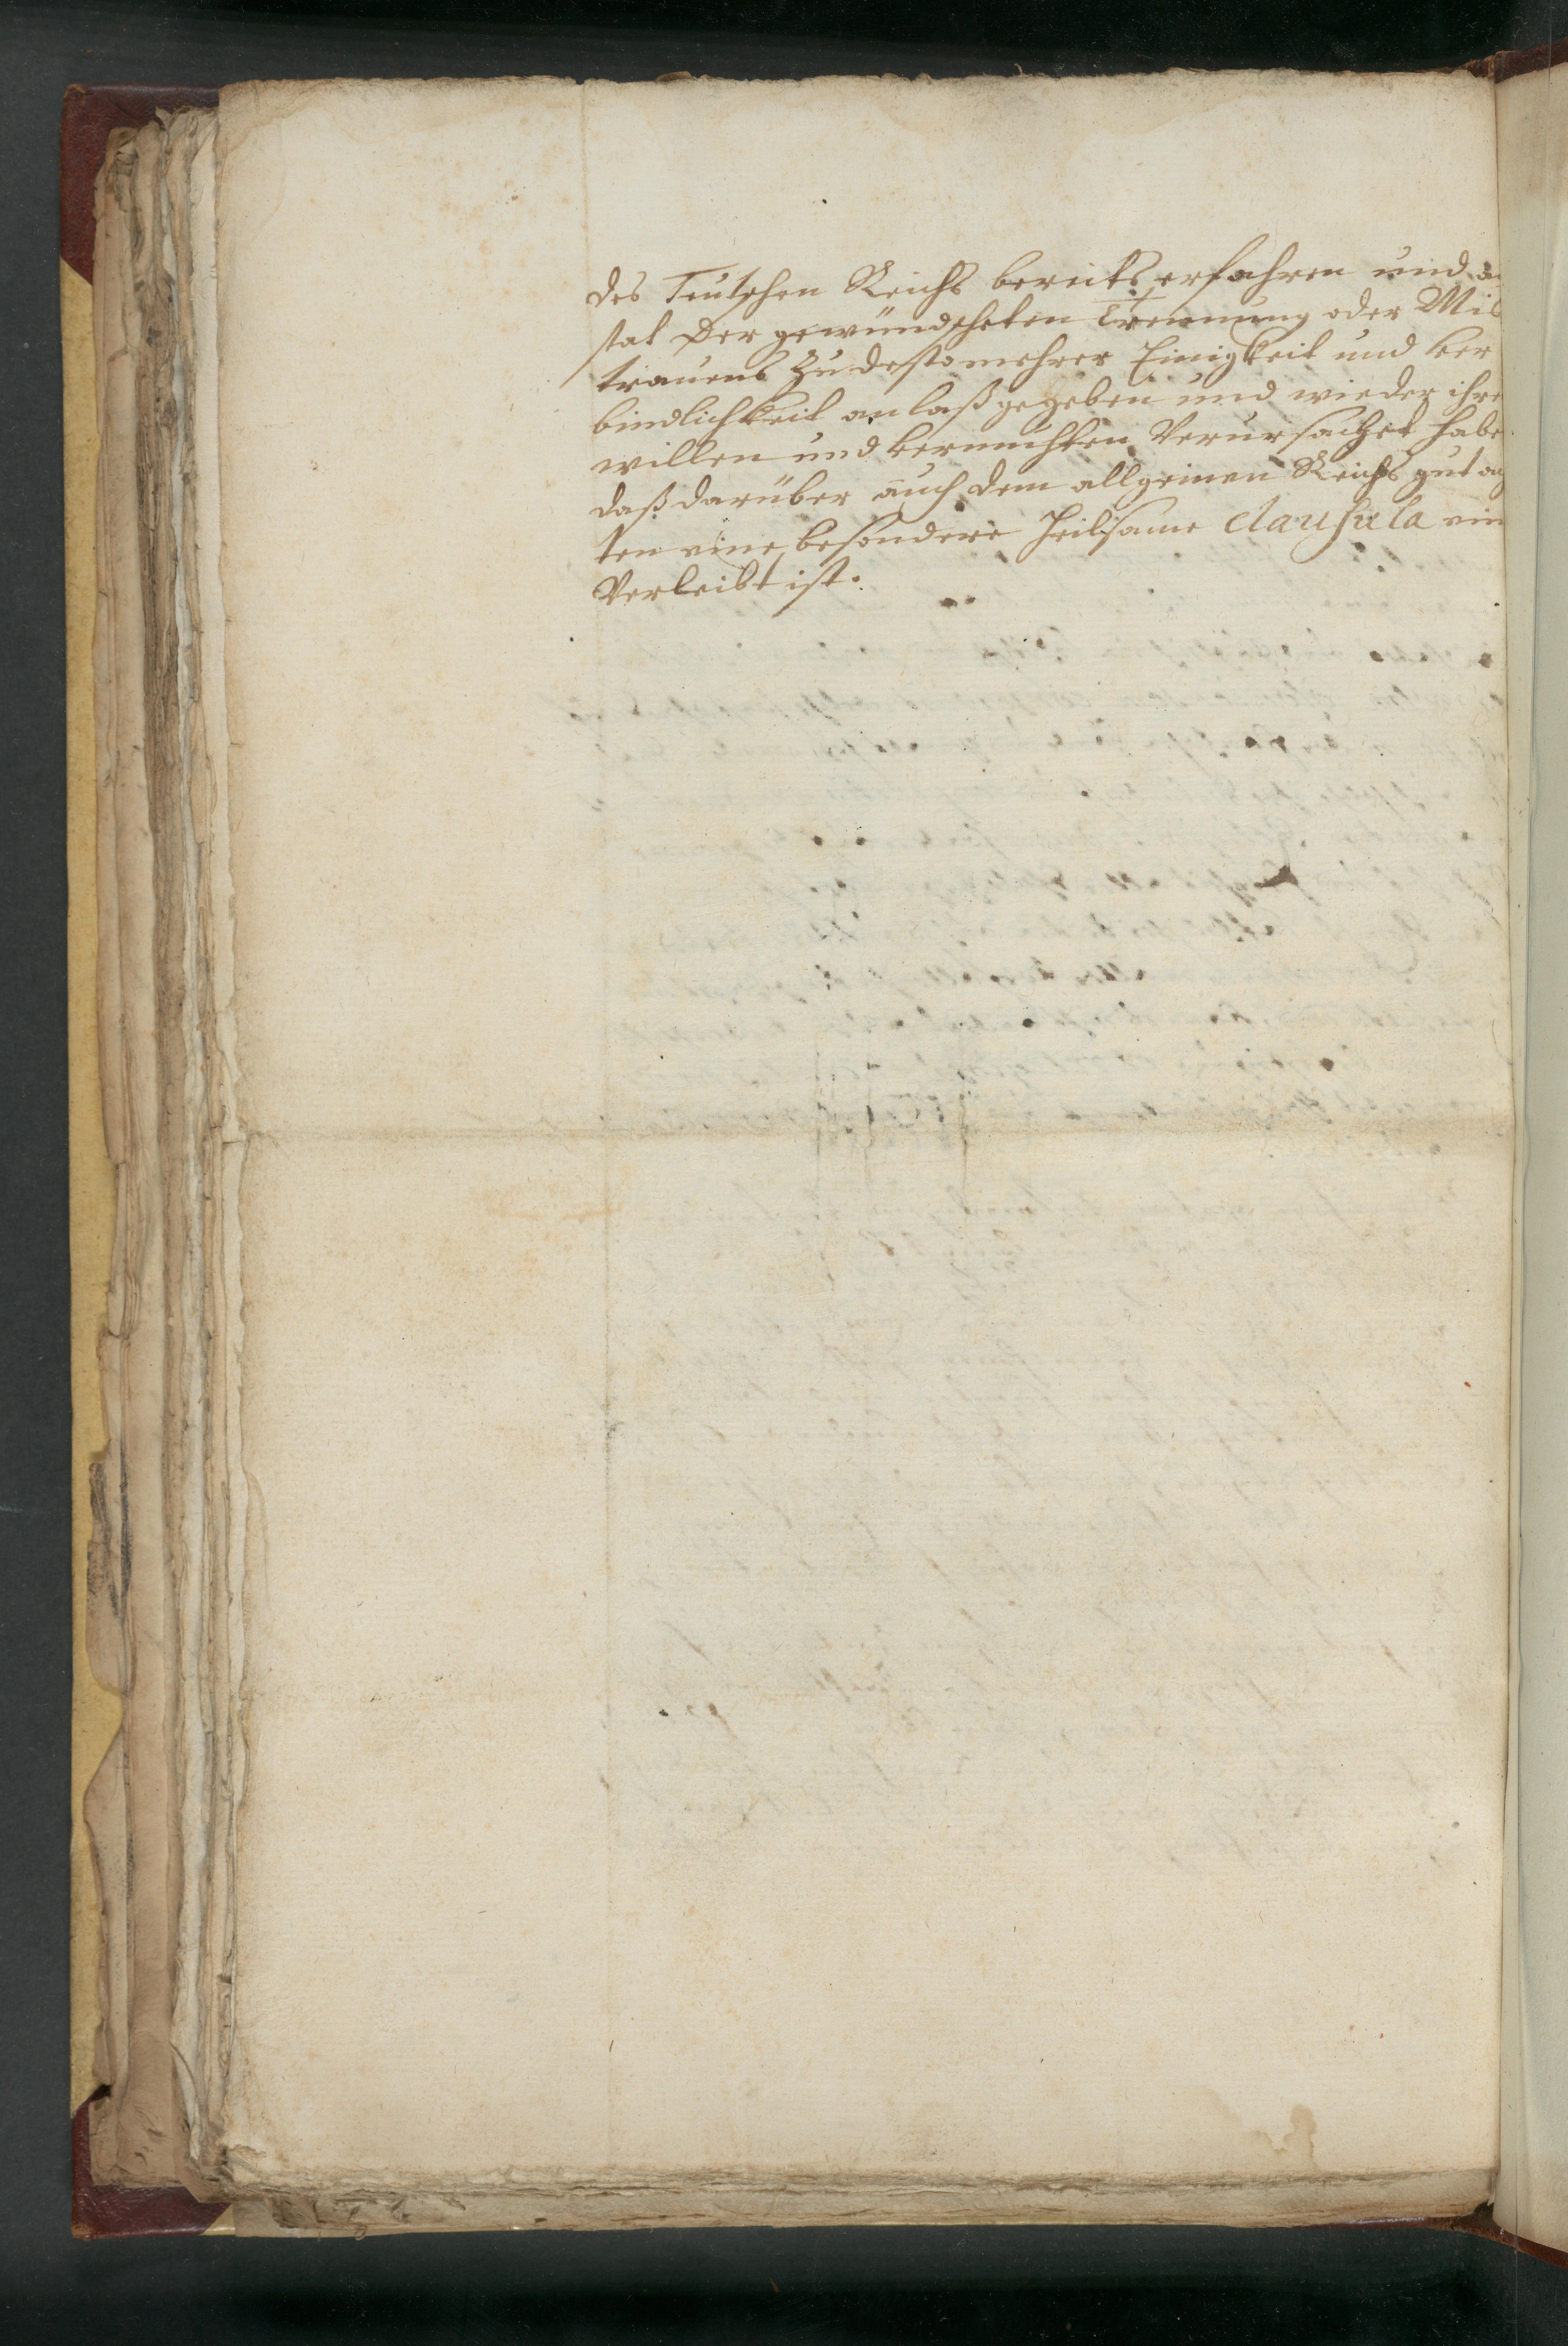 des Teutschen Reichs bereits erfahren und a
stat der gewündscheten Trennung oder Mis
trauens zu desto mehrer Einigkeit und ver
bindlichkeit anlaß gegeben und wieder ihre
willen und vermuhten Verursachet habe
daß darüber auch dem allgeinen Reichs gutac
ten eine besondere heilsame clausula ein
Verleibt ist.